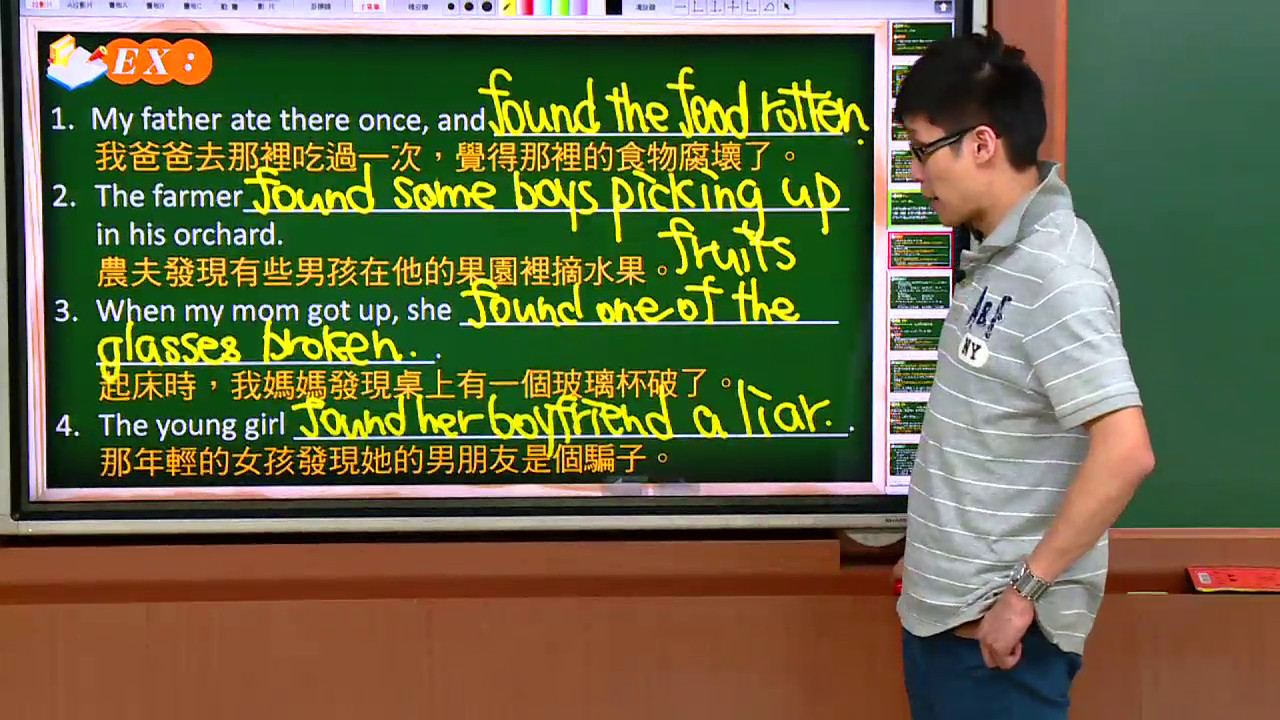 EX:
1. My father ate there once, and found the food rotten.
我爸爸去那裡吃過一次，覺得那裡的食物腐壞了。
2. The farmer found some boys picking up
in his orchard. fruits
農夫發現有些男孩在他的果園裡摘水果。
3. When my mom got up, she found one of the
glasses broken. .
起床時，我媽媽發現桌上有一個玻璃杯破了。
4. The young girl found her boyfriend a liar. .
那年輕的女孩發現她的男朋友是個騙子。
A&F
NY